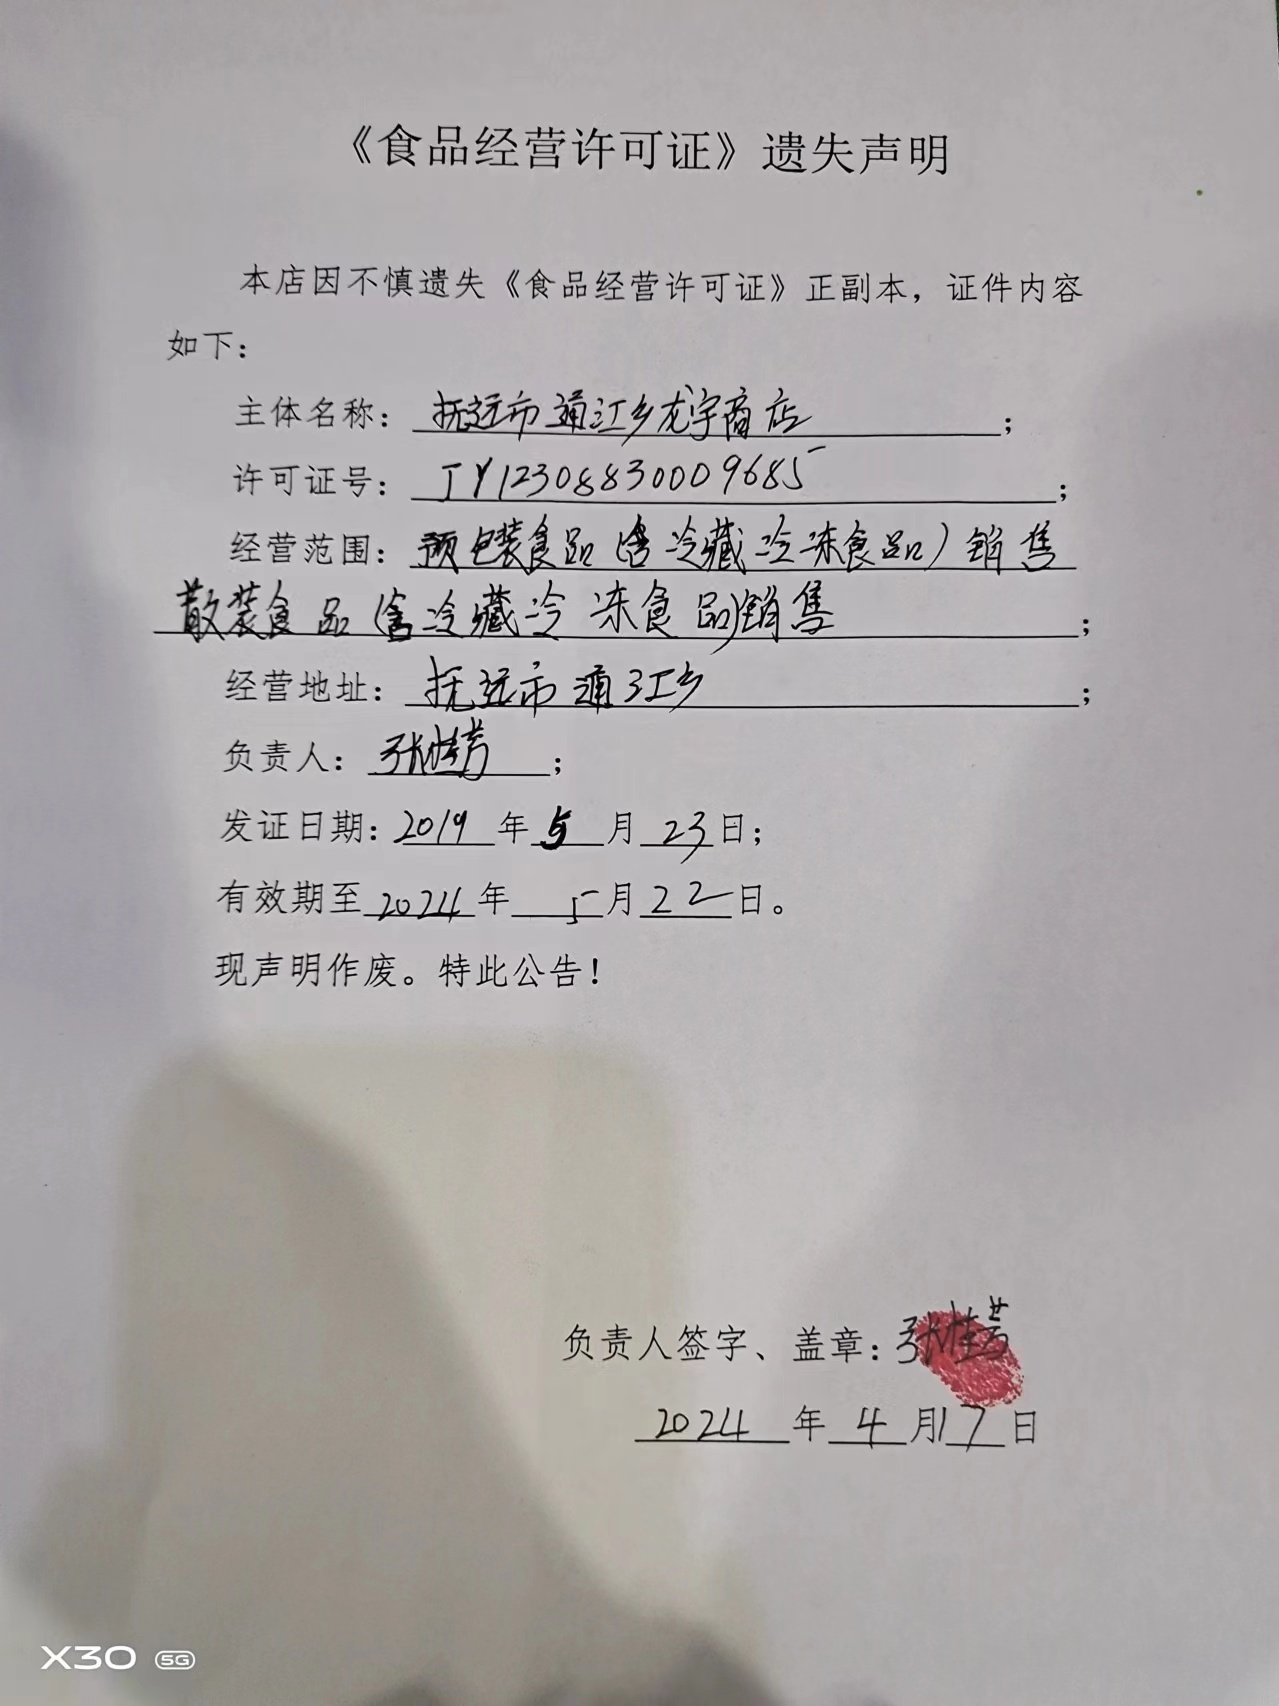 《食品经营许可证》遗失声明
本店因不慎遗失《食品经营许可证》正副本，证件内容
如下：
主体名称：抚远市通江乡龙宇商店；
许可证号：JY12308830009685；
经营范围：预包装食品（含冷藏冷冻食品）销售
散装食品（含冷藏冷冻食品）销售；
经营地址：抚远市通江乡；
负责人：张桂芳；
发证日期：2019年5月23日；
有效期至2024年5月22日。
现声明作废。特此公告！
负责人签字、盖章：张桂芳
2024年4月17日
X30 5G